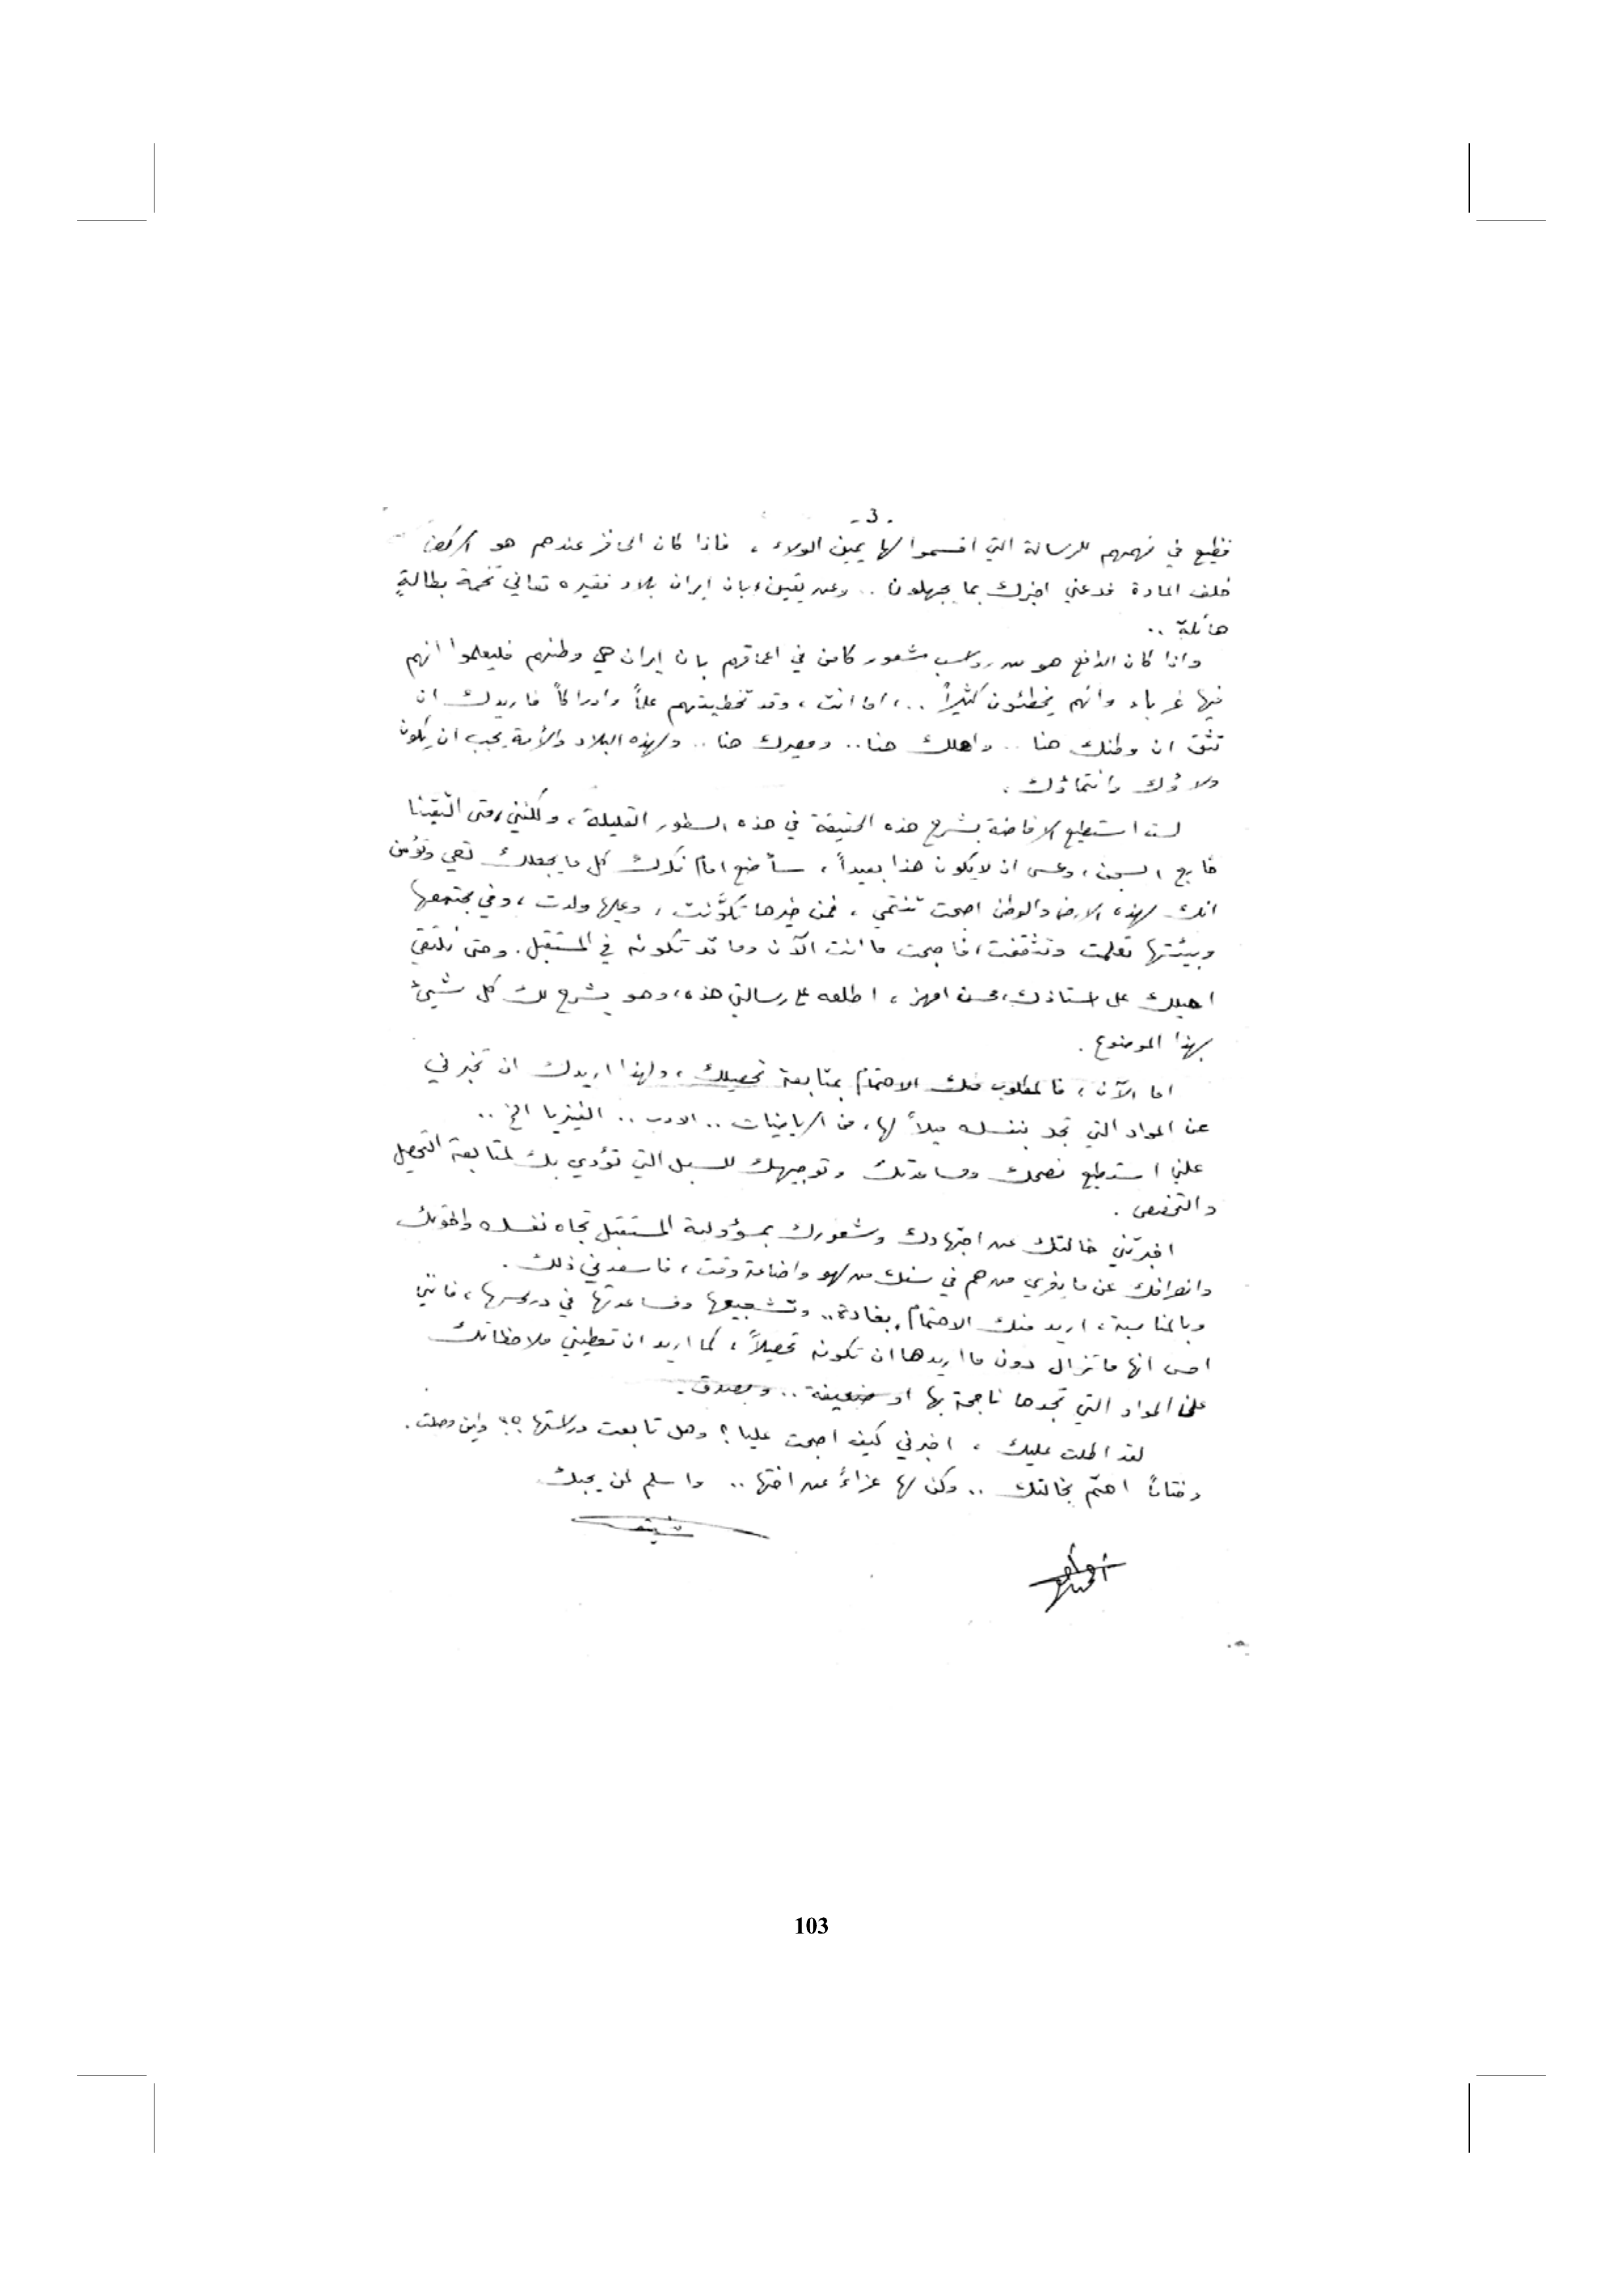 - 3 -
فظيع في فهمهم للرسالة التي اقسموا لها يمين الولاء ، فاذا كان الحافز عندهم هو الركض
خلف المادة فدعني اخبرك بما يجهلون .. وعن يقين، بان ايران بلاد فقيره تعاني تخمة بطالةٍ
هائلة ..
واذا كان الدافع هو من رواسب شعور كامن في اعماقهم بان ايران هي وطنهم فليعلموا انهم
فيها غرباء وانهم يخطئون كثيراً .. ، اما انت ، وقد تخطيتهم علماً وادراكاً فاريدك ان
تثق ان وطنك هنا .. واهلك هنا .. ومصيرك هنا .. ولهذه البلاد والأمة يجب ان يكون
ولاؤك وانتماؤك .
لست استطيع الافاضة بشرح هذه الحقيقة في هذه السطور القليلة ، ولكنني، متى التقينا
خارج السجن ، وعسى ان لا يكون هذا بعيداً ، سأضع امام فكرك كل ما يجعلك تعي وتؤمن
انك لهذه الارض والوطن اصبحت تنتمي ، فمن خيرها تكوَّنت ، وعليها ولدت ، وفي مجتمعها
وبيئتها تعلمت وتثقفت ، فاصبحت ما انت الآن وما قد تكونه في المستقبل . وحتى نلتقي
احيلك على استاذك، محسن امهز ، اطلعه على رسالتي هذه، وهو يشرح لك كل شيئ
بهذا الموضوع .
اما الآن ، فالمطلوب منك الاهتمام بمتابعة تحصيلك ، ولهذا اريدك ان تخبرني
عن المواد التي تجد بنفسك ميلاً لها ، من الرياضيات .. الادب .. الفيزيا الخ ..
علني استطيع نصحك ومساعدتك وتوجيهك للسبل التي تؤدي بك لمتابعة التحصيل
والتخصص .
اخبرتني خالتك عن اجتهادك وشعورك بمسؤولية المستقبل تجاه نفسك واخوتك
وانصرافك عن ما يغري من هم في سنك من لهو واضاعة وقت ، فاسعدني ذلك .
وبالمناسبة ، اريد منك الاهتمام بغادة .. وتشجيعها ومساعدتها في دروسها ، فانني
احس انها ما تزال دون ما اريدها ان تكونه تحصيلاً ، كما اريد ان تعطيني ملاحظاتك
على المواد التي تجدها ناجحة بها او ضعيفة .. وبصدق .
لقد اطلت عليك ، اخبرني كيف اصبحت عليا ؟ وهل تابعت دراستها ؟؟ واين وصلت .
وختاماً اهتمّ بخالتك .. وكن لها عزاءً عن اختها .. واسلم لمن يحبك
103